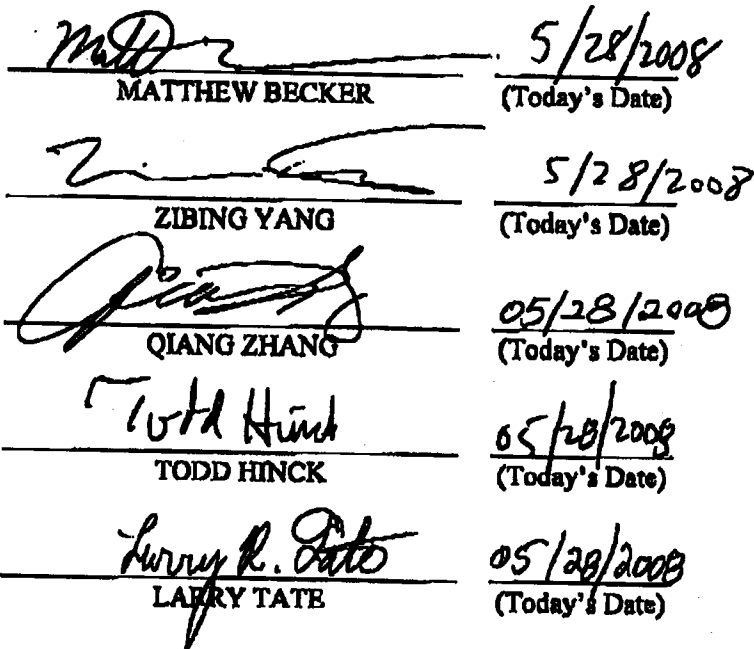 Matt 5/28/2008
MATTHEW BECKER (Today's Date)
5/28/2008
ZIBING YANG (Today's Date)
05/28/2008
QIANG ZHANG (Today's Date)
Todd Hinck 05/28/2008
TODD HINCK (Today's Date)
Larry R. Tate 05/28/2008
LARRY TATE (Today's Date)